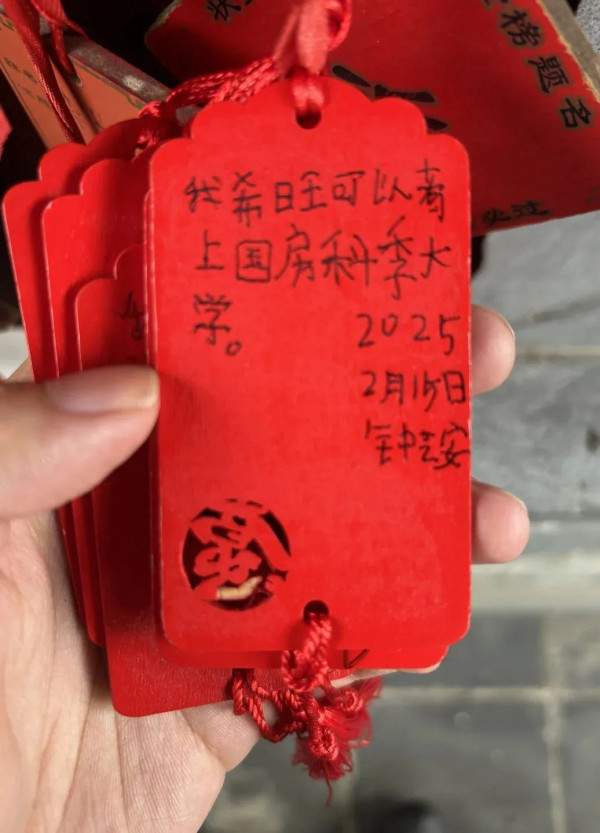 我希旺可以考
上国房科季大
学。
2025
2月15日
榜题名